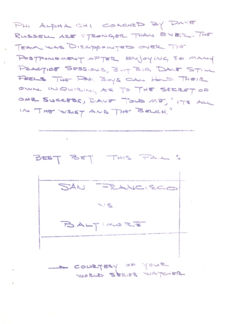 PHI ALPHA CHI COACHED BY DAVE
RUSSELL ARE STRONGER THAN EVER. THE
TEAM WAS DISAPPOINTED OVER THE
POSTPONEMENT AFTER ENJOYING SO MANY
PRACTICE SESSIONS, BUT BIG DAVE STILL
FEELS THE BOYS CAN HOLD THEIR
OWN IN AS TO THE SECRET OF
OUR SUCCESS, DAVE TOLD ME, "ITS ALL
IN THE WRIST AND THE BELCH."
BEST BET THIS FALL:
SAN FRANCISCO
VS
BALTIMORE
COURTESY OF YOUR
WORLD SERIES WATCHER